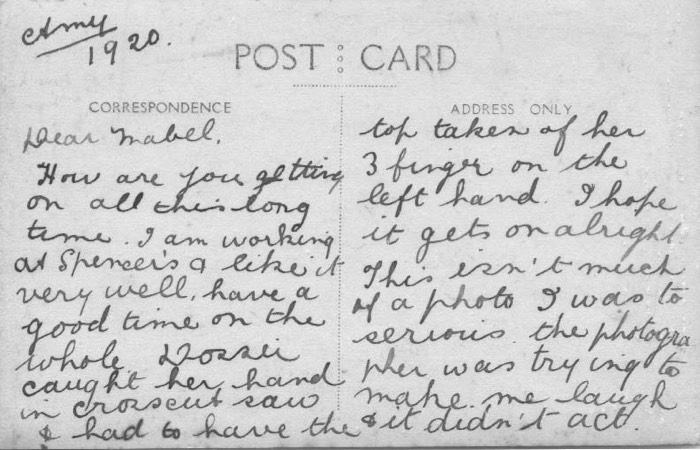 Amy
1920.
POST CARD
CORRESPONDENCE
Dear Mabel,
How are you getting
on all this long
time. I am working
at Spencer's & like it
very well, have a
good time on the
whole Dossei
caught her hand
in crosscut saw
& had to have the
ADDRESS ONLY
top taken of her
3 finger on the
left hand. I hope
it gets on alright
This isn't much
of a photo I was to
serious. the photogra
pher was trying to
make me laugh
& it didn't act.